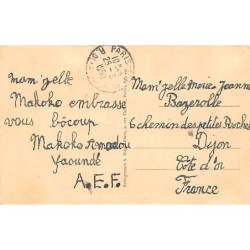 mam'zelle
Makoko embrasse
vous bôcoup
Makoko Amadou
Yaoundé
A.E.F.
PARIS
25
Mam'zelle Marie Jeanne
Bazerolle
6 chemin des petites Roches
Dijon
Côte d'or
France